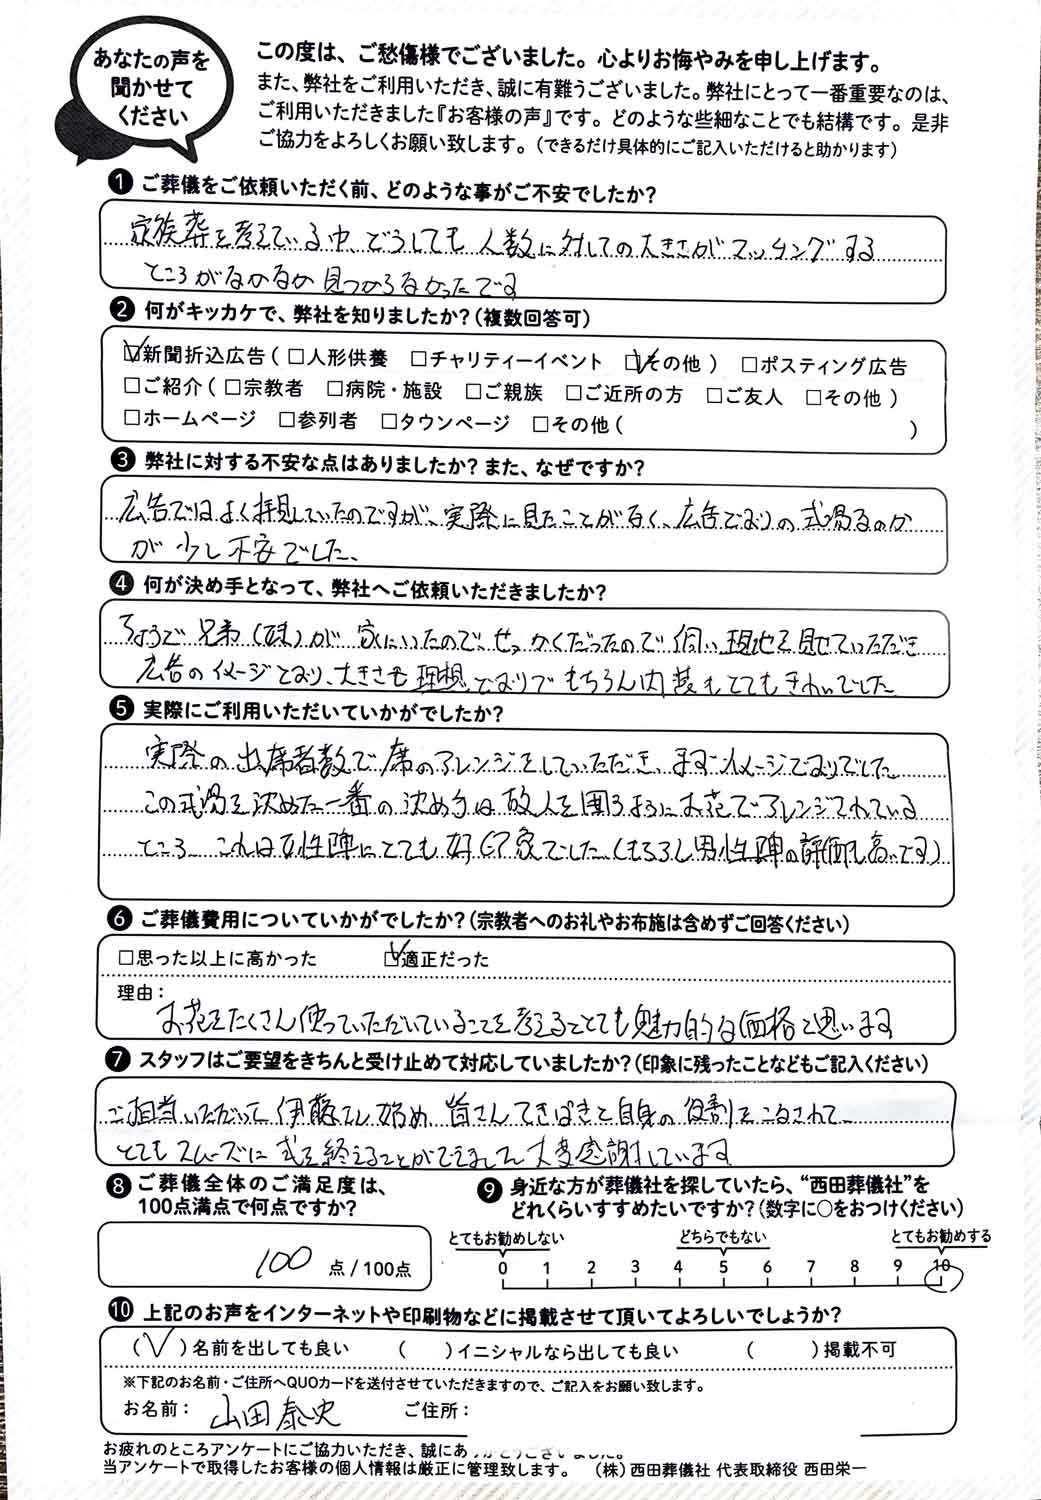 あなたの声を
聞かせて
ください
この度は、ご愁傷様でございました。心よりお悔やみを申し上げます。
また、弊社をご利用いただき、誠に有難うございました。弊社にとって一番重要なのは、
ご利用いただきました『お客様の声』です。どのような些細なことでも結構です。是非
ご協力をよろしくお願い致します。（できるだけ具体的にご記入いただけると助かります）
❶ ご葬儀をご依頼いただく前、どのような事がご不安でしたか？
家族葬を考えている中、どうしても人数に対しての大きさがマッチングする
ところがなかなか見つからなかったです
❷ 何がキッカケで、弊社を知りましたか？（複数回答可）
☑新聞折込広告（□人形供養 □チャリティーイベント ☑その他） □ポスティング広告
□ご紹介（□宗教者 □病院・施設 □ご親族 □ご近所の方 □ご友人 □その他）
□ホームページ □参列者 □タウンページ □その他（ ）
❸ 弊社に対する不安な点はありましたか？また、なぜですか？
広告ではよく拝見していたのですが、実際に見たことがなく、広告どおりの式場なのか
が少し不安でした、
❹ 何が決め手となって、弊社へご依頼いただきましたか？
ちょうど兄弟（妹）が家にいたので、せっかくだったので伺い現地を見せていただき
広告のイメージどおり、大きさも理想どおりでもちろん内装もとてもきれいでした
❺ 実際にご利用いただいていかがでしたか？
実際の出席者数で席のアレンジをしていただき、まずイメージどおりでした
この式場を決めた一番の決め手は故人を囲うようにお花でアレンジされている
ところ これは女性陣にとても好印象でした（もちろん男性陣の評価も高いです）
❻ ご葬儀費用についていかがでしたか？（宗教者へのお礼やお布施は含めずご回答ください）
□思った以上に高かった ☑適正だった
理由：
お花をたくさん使っていただいていることを考えるととても魅力的な価格と思います
❼ スタッフはご要望をきちんと受け止めて対応していましたか？（印象に残ったことなどもご記入ください）
ご担当いただいた伊藤さん始め、皆さんてきぱきと自身の役割をこなされて
とてもスムーズに式を終えることができました 大変感謝しています
❽ ご葬儀全体のご満足度は、
100点満点で何点ですか？
100 点／100点
❾ 身近な方が葬儀社を探していたら、“西田葬儀社”を
どれくらいすすめたいですか？（数字に○をおつけください）
とてもお勧めしない どちらでもない とてもお勧めする
0 1 2 3 4 5 6 7 8 9 10
❿ 上記のお声をインターネットや印刷物などに掲載させて頂いてよろしいでしょうか？
（✓）名前を出しても良い （ ）イニシャルなら出しても良い （ ）掲載不可
※下記のお名前・ご住所へQUOカードを送付させていただきますので、ご記入をお願い致します。
お名前： 山田泰史 ご住所：
お疲れのところアンケートにご協力いただき、誠にありがとうございました。
当アンケートで取得したお客様の個人情報は厳正に管理致します。 （株）西田葬儀社 代表取締役 西田栄一